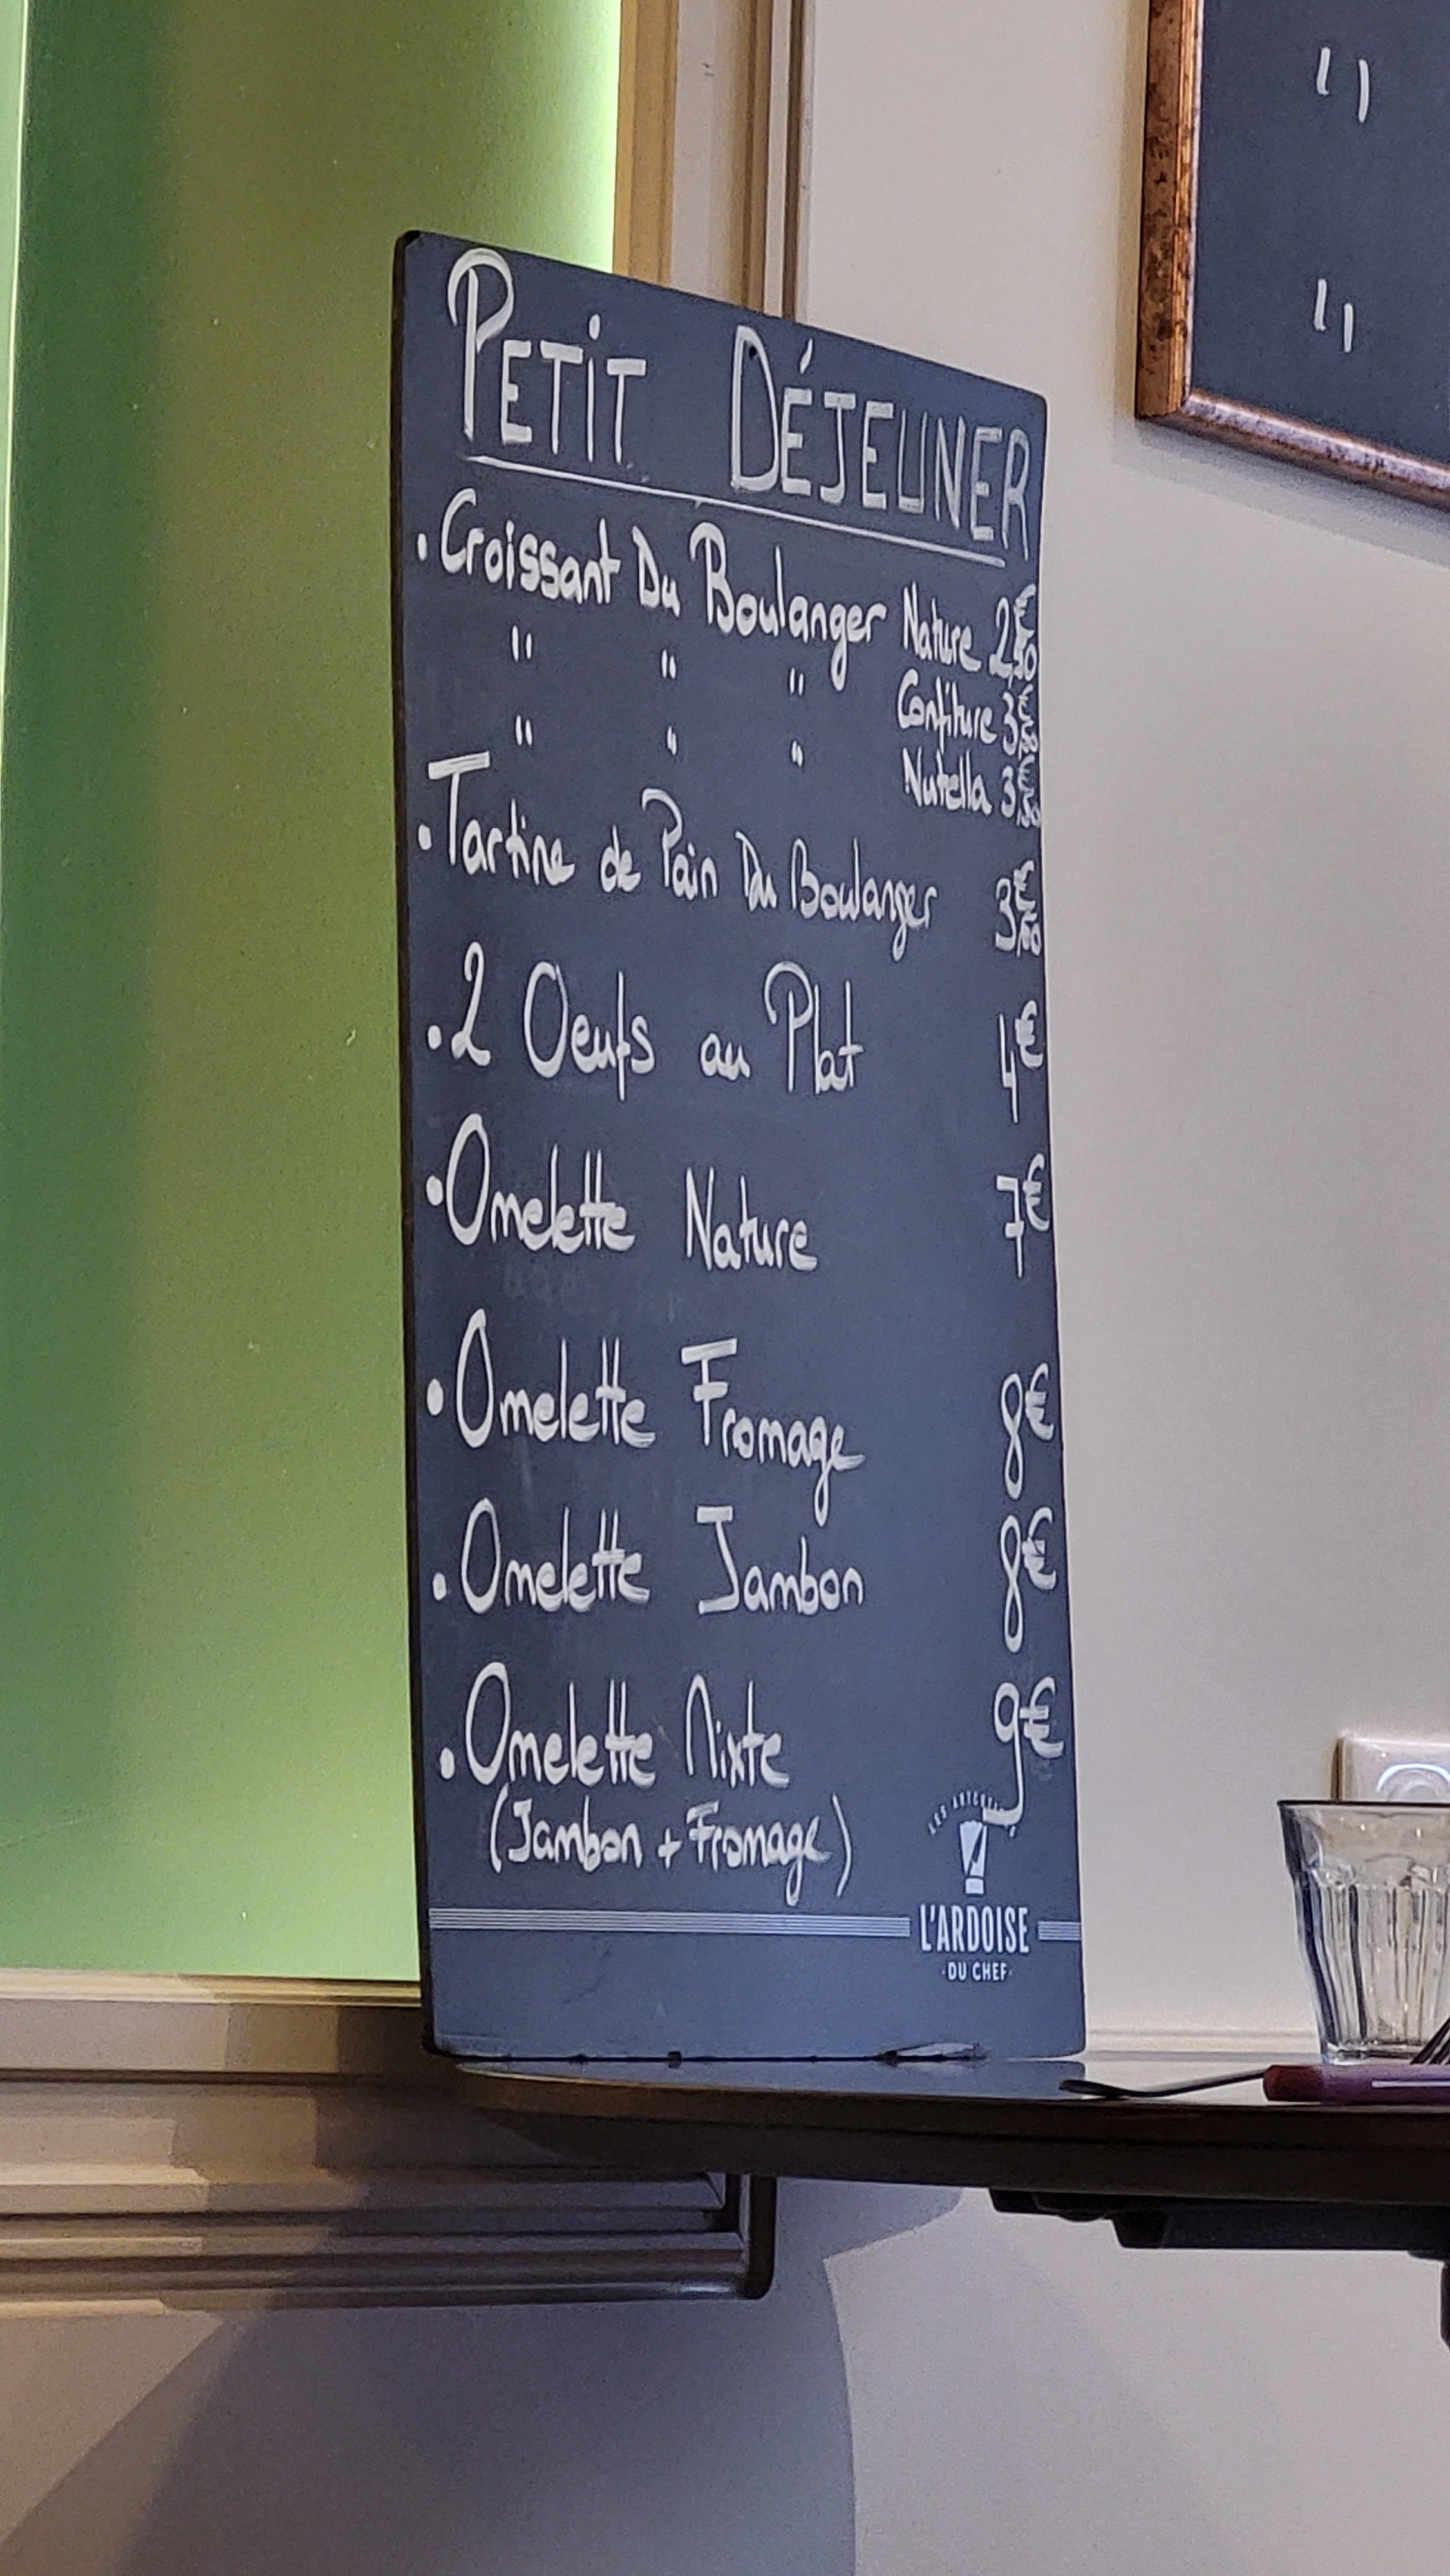 PETIT DÉJEUNER
. Croissant Du Boulanger Nature 2€50
" " " Confiture 3€50
" " " Nutella 3€50
. Tartine de Pain Du Boulanger 3€
. 2 Oeufs au Plat 4€
. Omelette Nature 7€
. Omelette Fromage 8€
. Omelette Jambon 8€
. Omelette Mixte 9€
(Jambon + Fromage)
L'ARDOISE
DU CHEF